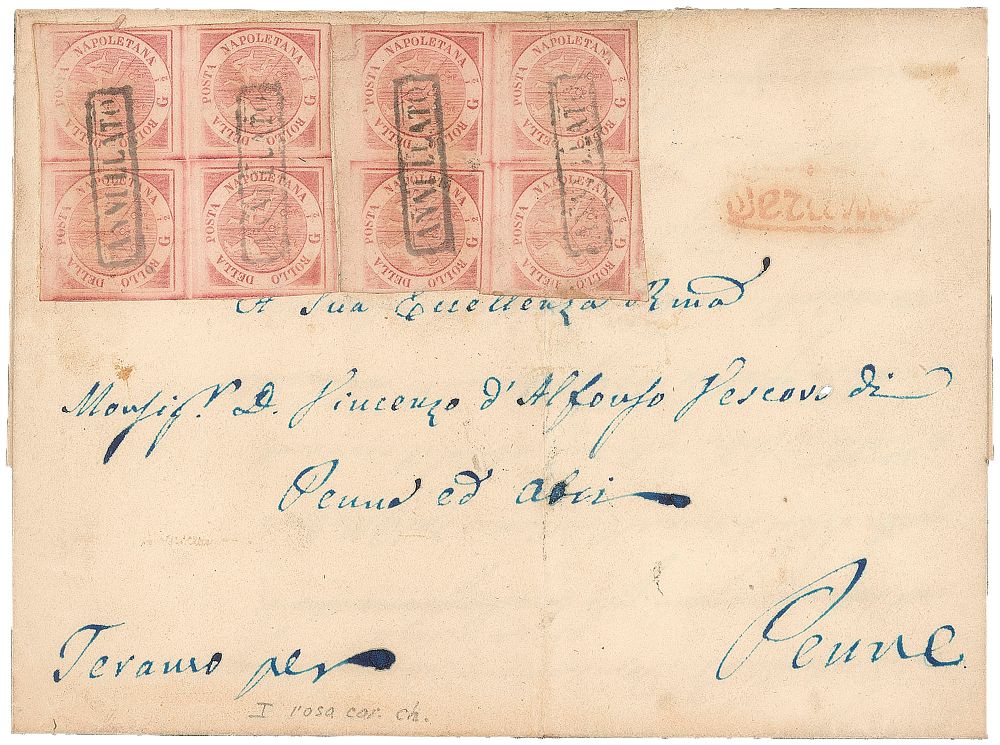 BOLLO DELLA POSTA NAPOLETANA G ½
BOLLO DELLA POSTA NAPOLETANA G ½
BOLLO DELLA POSTA NAPOLETANA G ½
BOLLO DELLA POSTA NAPOLETANA G ½
BOLLO DELLA POSTA NAPOLETANA G ½
BOLLO DELLA POSTA NAPOLETANA G ½
BOLLO DELLA POSTA NAPOLETANA G ½
BOLLO DELLA POSTA NAPOLETANA G ½
ANNULLATO
ANNULLATO
ANNULLATO
ANNULLATO
A Sua Eccellenza Rma
Monsigr. D. Vincenzo d'Alfonso Vescovo di
Penne ed Atri
Teramo per
Penne
I rosa car. ch.